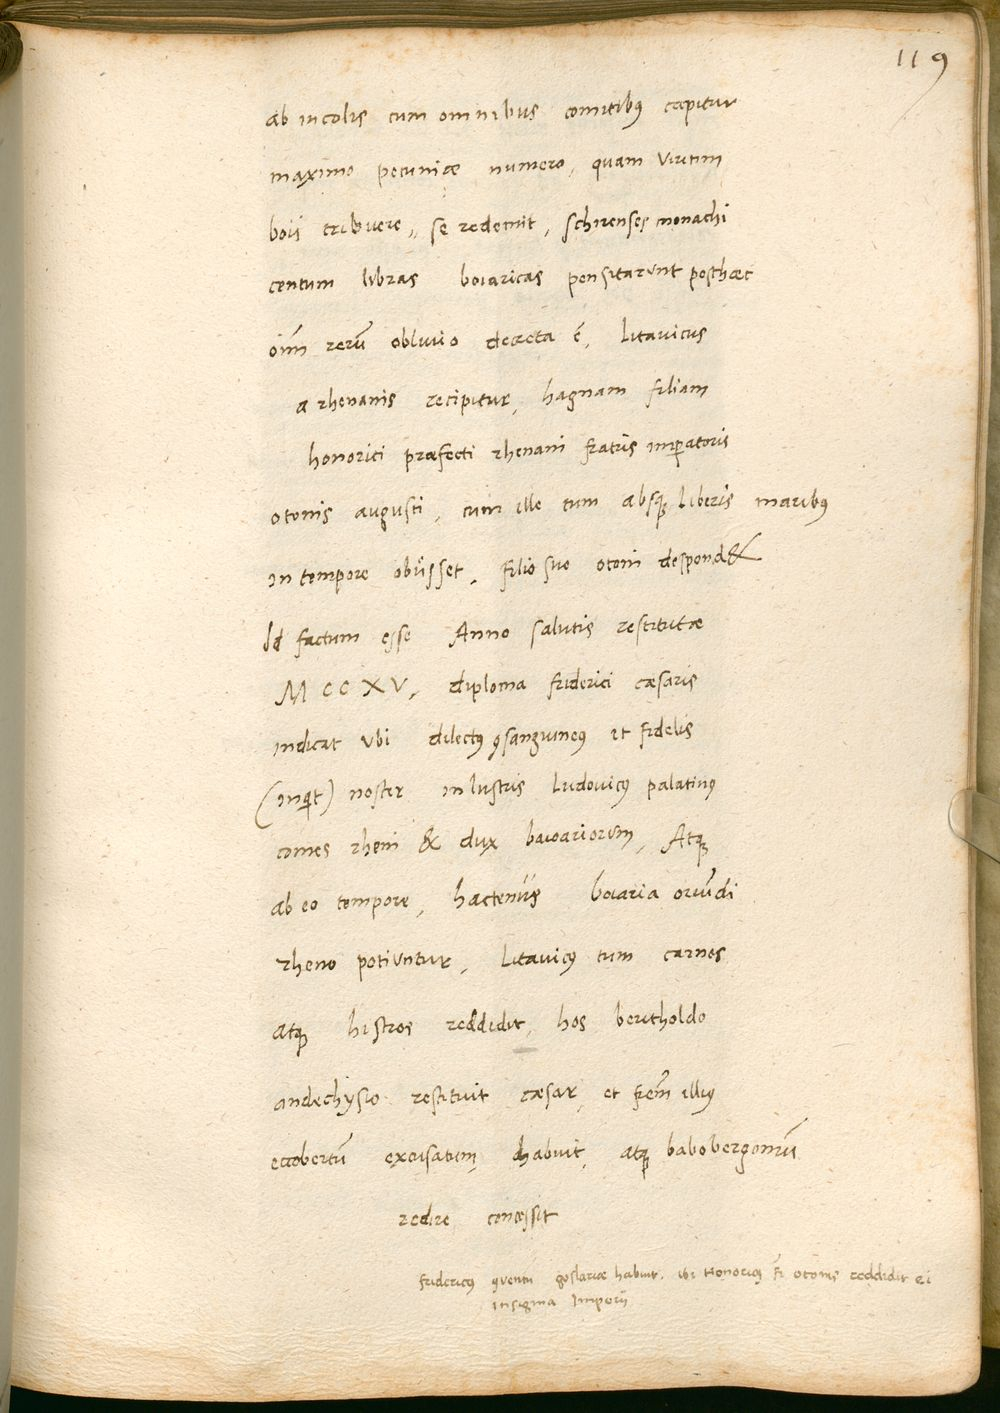 119
ab incolis cum omnibus comitibꝰ capitur
maximo pecuniæ numero, quam viritim
boij tribuere,, se redemit, schirenses monachi
centum libras boiaricas pensitarunt posthæc
oīm rerū oblivio decreta ē, Litavicus
a rhenanis recipitur, hagnam filiam
honorici præfecti rhenani fratris imꝑatoris
otonis augusti, cum ille tum absqꝫ liberis maribꝰ
in tempore obijsset, filio suo otoni despond&
Id factum esse Anno salutis restitutæ
M CC XV, diploma friderici cæsaris
indicat ubi dilectꝰ ꝯsanguineꝰ et fidelis
(inqͥt) noster inlustris Ludovicꝰ palatinꝰ
comes rheni & dux baioariorum, Atqꝫ
ab eo tempore, hactenus boiaria oriūdi
rheno potiuntur, Litavicꝰ tum carnes
atqꝫ histros reddidit, hos bertholdo
andechysio restituit cæsar, et frēm illiꝰ
eccobertū excusatum habuit, atqꝫ babobergomū
redire concessit
fridericꝰ ꝯventū goslariæ habuit, ubi Honoricꝰ fr̄ otonis reddidit ei
insignia Imperij